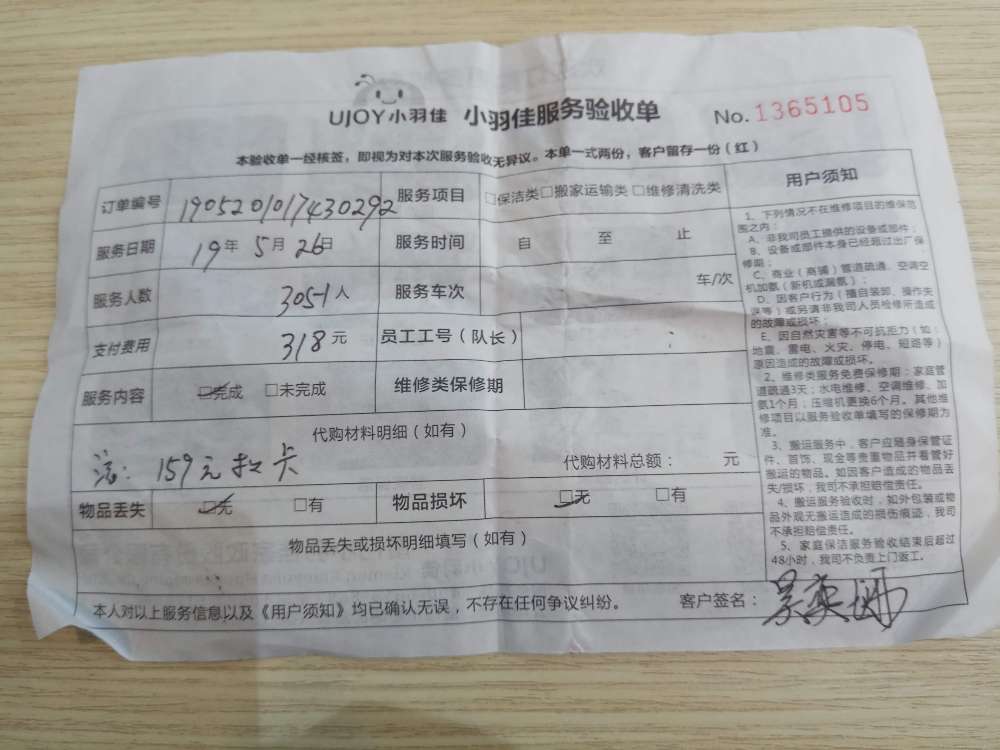 UJOY小羽佳 小羽佳服务验收单 No.1365105
本验收单一经核签，即视为对本次服务验收无异议。本单一式两份，客户留存一份（红）
订单编号 190520101743029​2 服务项目 □保洁类□搬家运输类□维修清洗类
服务日期 19年5月26日 服务时间 自 至 止
服务人数 3051人 服务车次 车/次
支付费用 318元 员工工号（队长）
服务内容 □完成 □未完成 维修类保修期
代购材料明细（如有）
注：159元扣卡
代购材料总额： 元
物品丢失 □无 □有 物品损坏 □无 □有
物品丢失或损坏明细填写（如有）
本人对以上服务信息以及《用户须知》均已确认无误，不存在任何争议纠纷。 客户签名：
用户须知
1、下列情况不在维修项目的维保范
围之内：
A、非我司员工提供的设备或部件；
B、设备或部件本身已经超过出厂保
修期；
C、商业（商铺）管道疏通、空调空
机加氨（新机或漏氨）；
D、因客户行为（擅自装卸、操作失
误等）或另请非我司人员检修所造成
的故障或损坏；
E、因自然灾害等不可抗拒力（如：
地震、雷电、火灾、停电、短路等）
原因造成的故障或损坏。
2、维修类服务免费保修期：家庭管
道疏通3天；水电维修、空调维修、加
氨1个月；压缩机更换6个月。其他维
修项目以服务验收单填写的保修期为
准。
3、搬运服务中，客户应随身保管证
件、首饰、现金等贵重物品并看管好
搬运的物品。如因客户造成的物品丢
失/损坏，我司不承担赔偿责任。
4、搬运服务验收时，如外包装或物
品外观无搬运造成的损伤痕迹，我司
不承担赔偿责任。
5、家庭保洁服务验收结束后超过
48小时，我司不负责上门返工。